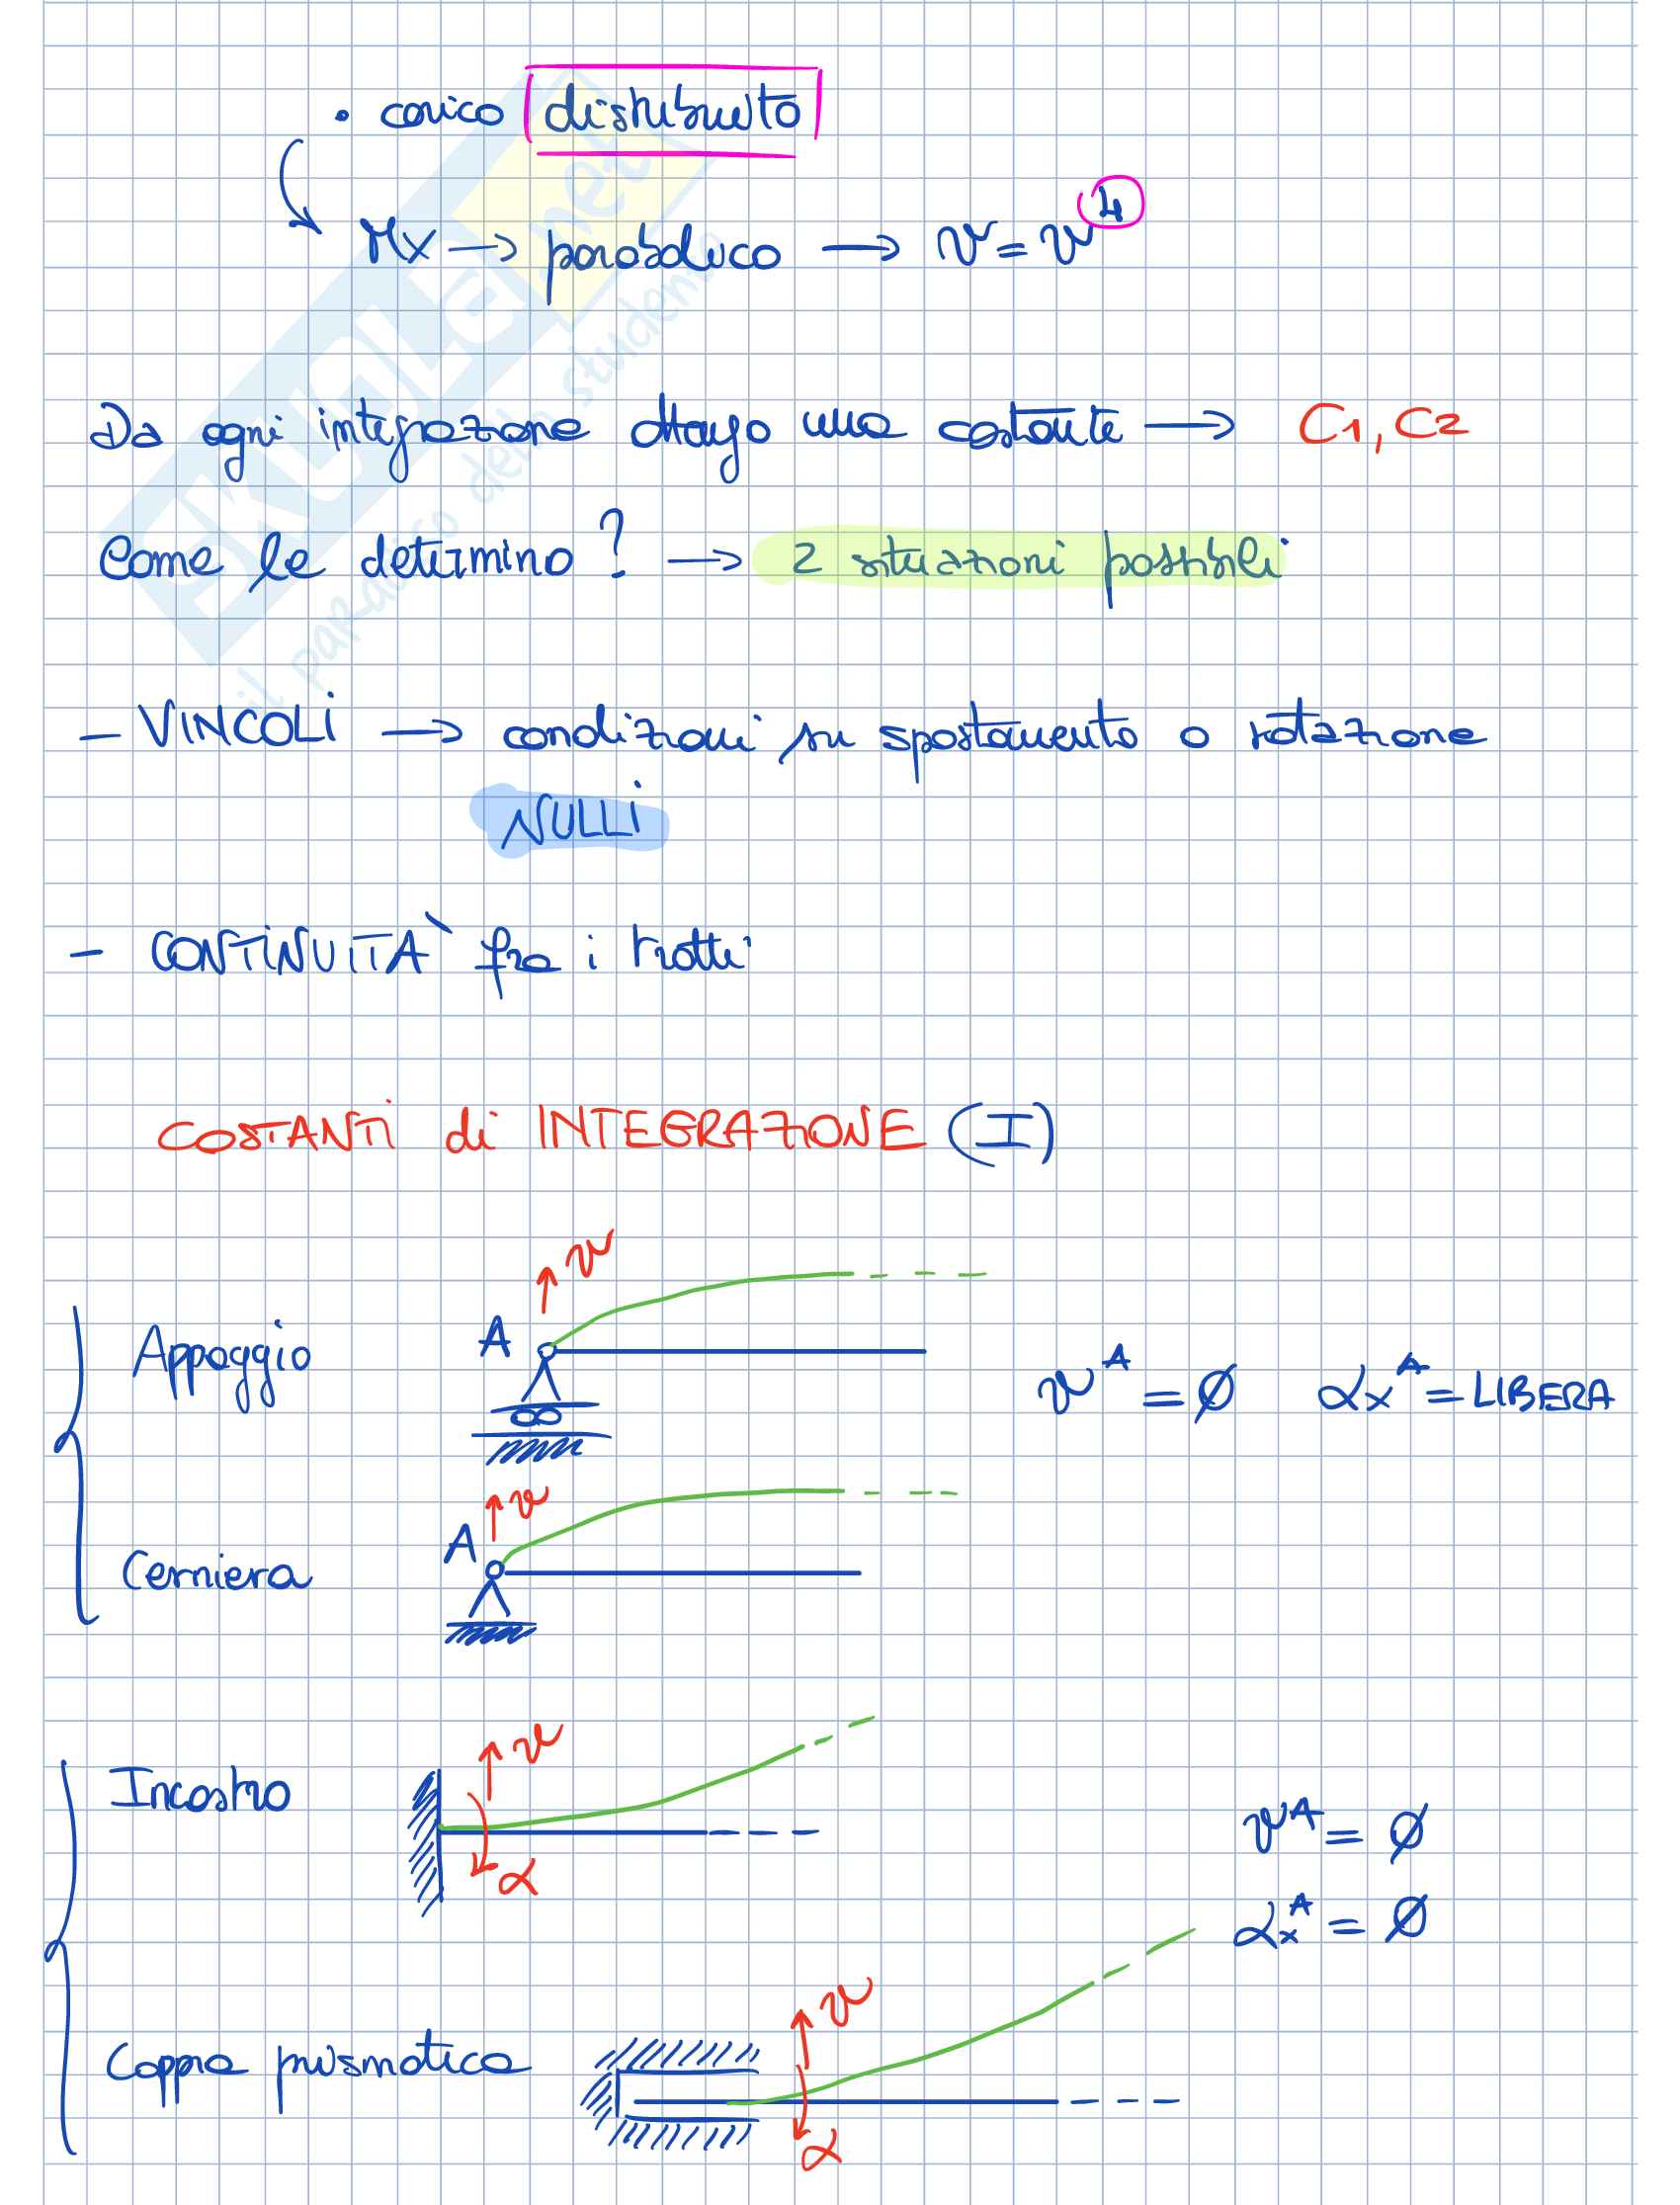 • carico distribuito
Mx → parabolico → v = v⁴
Da ogni integrazione ottengo una costante → C1, C2
Come le determino? → 2 situazioni possibili
- VINCOLI → condizioni su spostamento o rotazione
NULLI
- CONTINUITA` fra i tratti
COSTANTi di INTEGRAZIONE (I)
v
A
Appoggio
v^A = ∅ αx^A = LIBERA
v
A
Cerniera
v
Incastro
α
v^A = ∅
αx^A = ∅
v
Coppia prismatica
α
SKUOLA.net
il paradiso dello studente